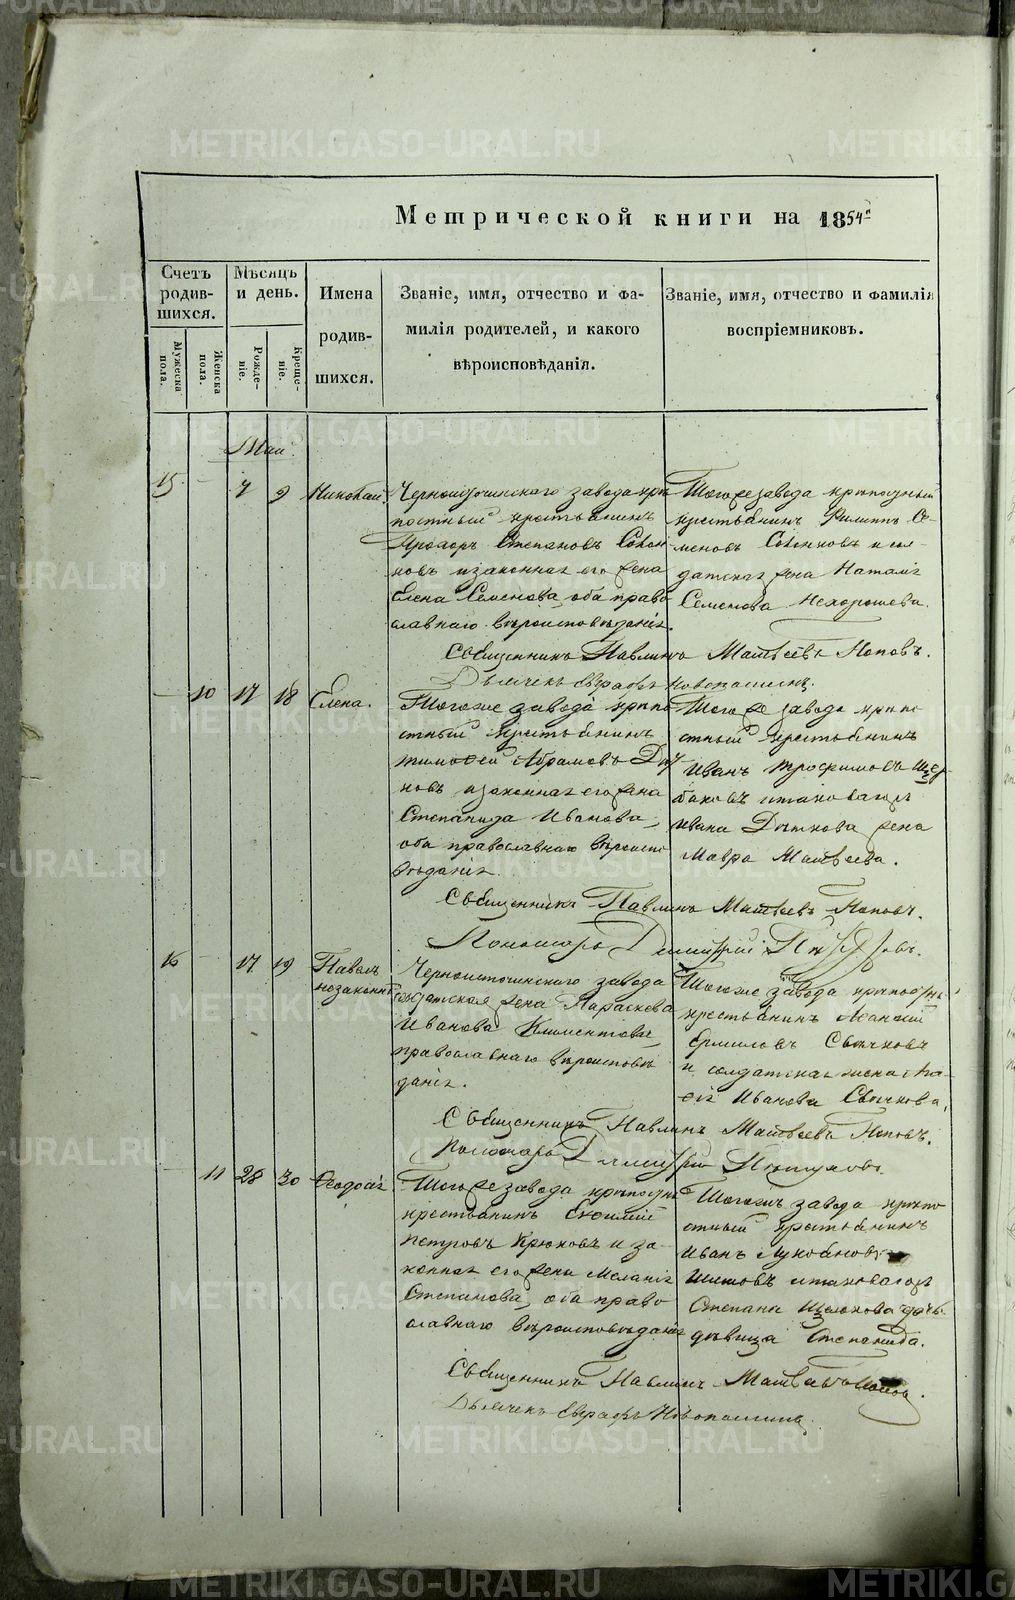 METRIKI.GASO-URAL.RU
Метрической книги на 1854й
Счетъ родив-шихся.
Мѣсяцъ и день.
Имена родив-шихся.
Званіе, имя, отчество и фа-
милія родителей, и какого
вѣроисповѣданія.
Званіе, имя, отчество и фамилія
воспріемниковъ.
Мужеска пола.
Женска пола.
Рожде-ніе.
Креще-ніе.
Май.
15 - 7 9 Николай.
Черноисточинскаго завода крѣ
постный крестьянинъ
Прохоръ Степановъ
новъ и законная его жена
Елена Семенова, оба право
славнаго вѣроисповѣданія.
Тогоже завода крѣпостный
крестьянинъ Филиппъ Се-
меновъ и сол-
датская жена Наталія
Семенова Нехорошева.
Священникъ Павлинъ Матвеевъ Поповъ.
Дьячекъ Евграфъ Новопашинъ.
- 10 17 18 Елена.
Тогоже завода крѣпо
стный крестьянинъ
Тимофей Абрамовъ
новъ и законная его жена
Степанида Иванова,
оба православнаго вѣроиспо
вѣданія.
Тогоже завода крѣпо
стный крестьянинъ
Иванъ Трофимовъ Щер-
баковъ и таковагоже
Ивана Дѣткова жена
Мавра Матвеева.
Священникъ Павлинъ Матвеевъ Поповъ.
Пономарь Димитрій
16 - 17 19 Павелъ
незаконно
Черноисточинскаго завода
солдатская жена Параскева
Иванова Климентова,
православнаго вѣроисповѣ
данія.
Тогоже завода крѣпостный
крестьянинъ Афанасій
Ермиловъ Свѣчковъ
и солдатская жена
Иванова Свѣчкова.
Священникъ Павлинъ Матвеевъ Поповъ.
Пономарь Димитрій
- 11 28 30 Феодосія
Тогоже завода крѣпостный
крестьянинъ Евфимій
Петровъ Крюковъ и за-
конная его жена Меланія
Степанова, оба право
славнаго вѣроисповѣданія
Тогожъ завода крѣпо
стный крестьянинъ
Иванъ Лукояновъ
Шиловъ и таковагоже
Степана дочь
дѣвица Степанида.
Священникъ Павлинъ Матвеевъ Поповъ.
Дьячекъ Евграфъ Новопашинъ.